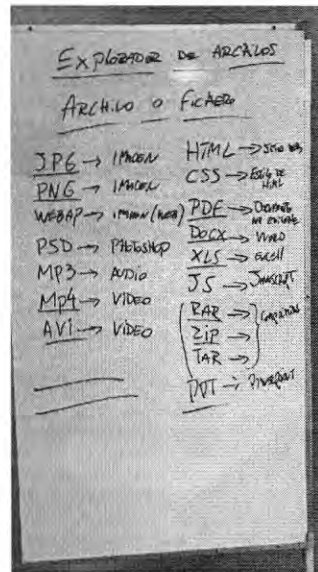 EXPLORADOR DE ARCHIVOS
ARCHIVO O FICHERO
JPG → IMAGEN
PNG → IMAGEN
WEBAP → IMAGEN (WEB)
PSD → PHOTOSHOP
MP3 → AUDIO
MP4 → VIDEO
AVI → VIDEO
HTML → SITIO WEB
CSS → ESTILO DE HTML
PDF → DOCUMENTO NO EDITABLE
DOCX → WORD
XLS → EXCEL
JS → JAVASCRIPT
RAR →
ZIP →
TAR →
PPT → POWERPOINT